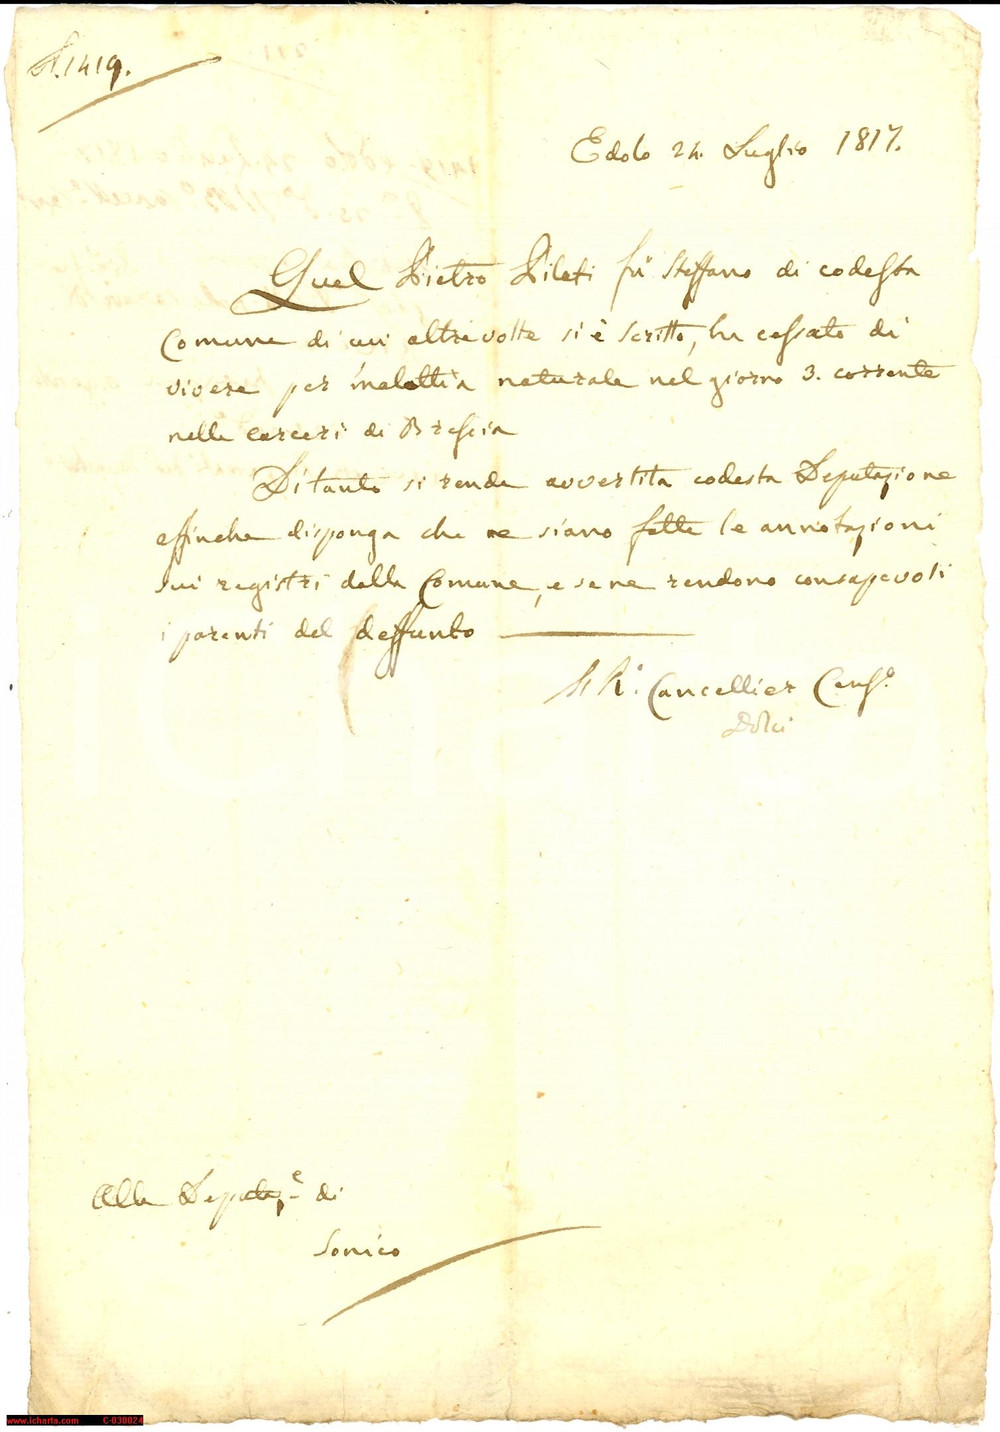 N. 1419.
Edolo 24. Luglio 1817.
Quel Pietro Pilati fu Steffano di codesta
Comune di cui altrevolte si è scritto, ha cessato di
vivere per malattia naturale nel giorno 3. corrente
nelle carceri di Brescia
Di tanto si rende avvertita codesta Deputazione
affinche disponga che ne siano fatte le annotazioni
sui registri della Comune, e se ne rendono consapevoli
i parenti del deffunto
Il R.º Cancellier Cens.º
Dolci
Alla Deputaz.e di
Sonico
www.icharta.com C-030024